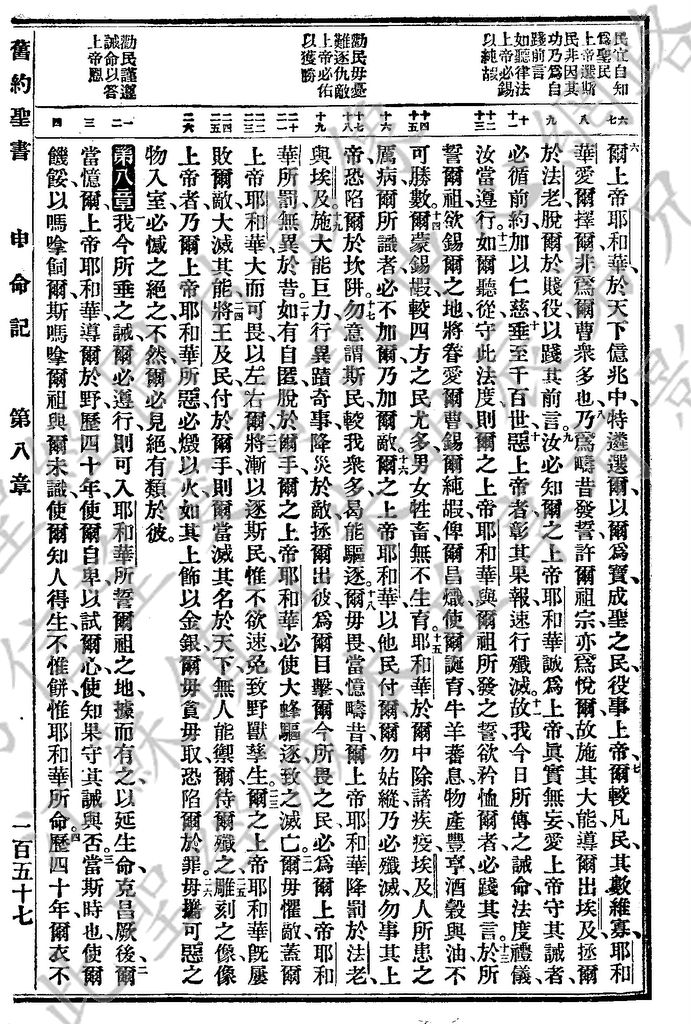 民宜自知
爲聖民
上帝選斯
民非因其
功乃爲自
踐前言
如聽律法
上帝必錫
以純嘏
勸民毋憂
難逐仇敵
上帝必佑
以獲勝
勸民謹遵
誡命以答
上帝恩
爾上帝耶和華於天下億兆中特遴選爾以爾爲寶成聖之民役事上帝爾較凡民其數維寡耶和
華愛爾擇爾非爲爾曹衆多也乃爲疇昔發誓許爾祖宗亦爲悅爾故施其大能導爾出埃及拯爾
於法老脫爾於賤役以踐其前言汝必知爾之上帝耶和華誠爲上帝眞實無妄愛上帝守其誡者
必循前約加以仁慈垂至千百世惡上帝者彰其果報速行殲滅故我今日所傳之誡命法度禮儀
汝當遵行如爾聽從守此法度則爾之上帝耶和華與爾祖所發之誓欲矜恤爾者必踐其言於所
誓爾祖欲錫爾之地將眷愛爾曹錫爾純嘏俾爾昌熾使爾誕育牛羊蕃息物產豐亨酒穀與油不
可勝數爾蒙錫嘏較四方之民尤多男女牲畜無不生育耶和華於爾中除諸疾疫埃及人所患之
厲病爾所識者必不加爾乃加爾敵爾之上帝耶和華以他民付爾爾勿姑縱乃必殲滅勿事其上
帝恐陷爾於坎阱勿意謂斯民較我衆多曷能驅逐爾毋畏當憶疇昔爾上帝耶和華降罰於法老
與埃及施大能巨力行異蹟奇事降災於敵拯爾出彼爲爾目擊爾今所畏之民必爲爾上帝耶和
華所罰無異於昔如有自匿脫於爾手爾之上帝耶和華必使大蜂驅逐致之滅亡爾毋懼敵蓋爾
上帝耶和華大而可畏以左右爾將漸以逐斯民惟不欲速免致野獸孳生爾之上帝耶和華旣屢
敗爾敵大滅其能將王及民付於爾手則爾當滅其名於天下無人能禦爾待爾殲之雕刻之像像
上帝者乃爾上帝耶和華所惡必燬以火如其上飾以金銀爾毋貪毋取恐陷爾於罪毋攜可惡之
物入室必憾之絕之不然爾必見絕有類於彼
第八章 我今所垂之誡爾必遵行則可入耶和華所誓爾祖之地據而有之以延生命克昌厥後爾
當憶爾上帝耶和華導爾於野歷四十年使爾自卑以試爾心使知果守其誡與否當斯時也使爾
饑餒以嗎嗱飼爾斯嗎嗱爾祖與爾未識使爾知人得生不惟餅惟耶和華所命歷四十年爾衣不
舊約聖書 申命記 第八章 一百五十七